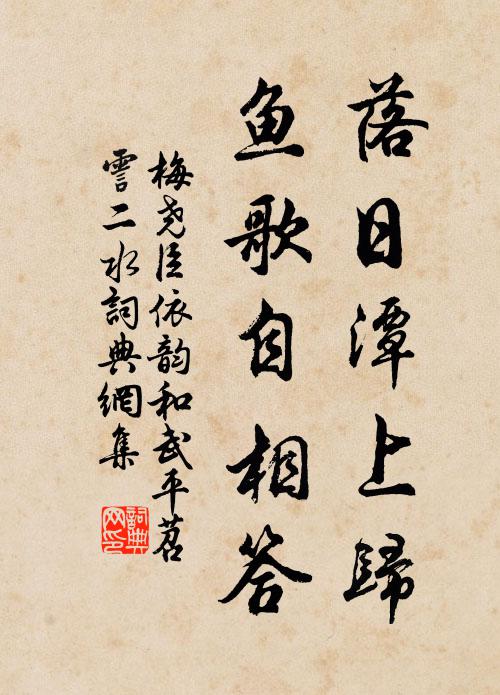 落日潭上歸
鱼歌自相答
梅尧臣依韵和武平苕
霅二水詞典網集
詞典网印